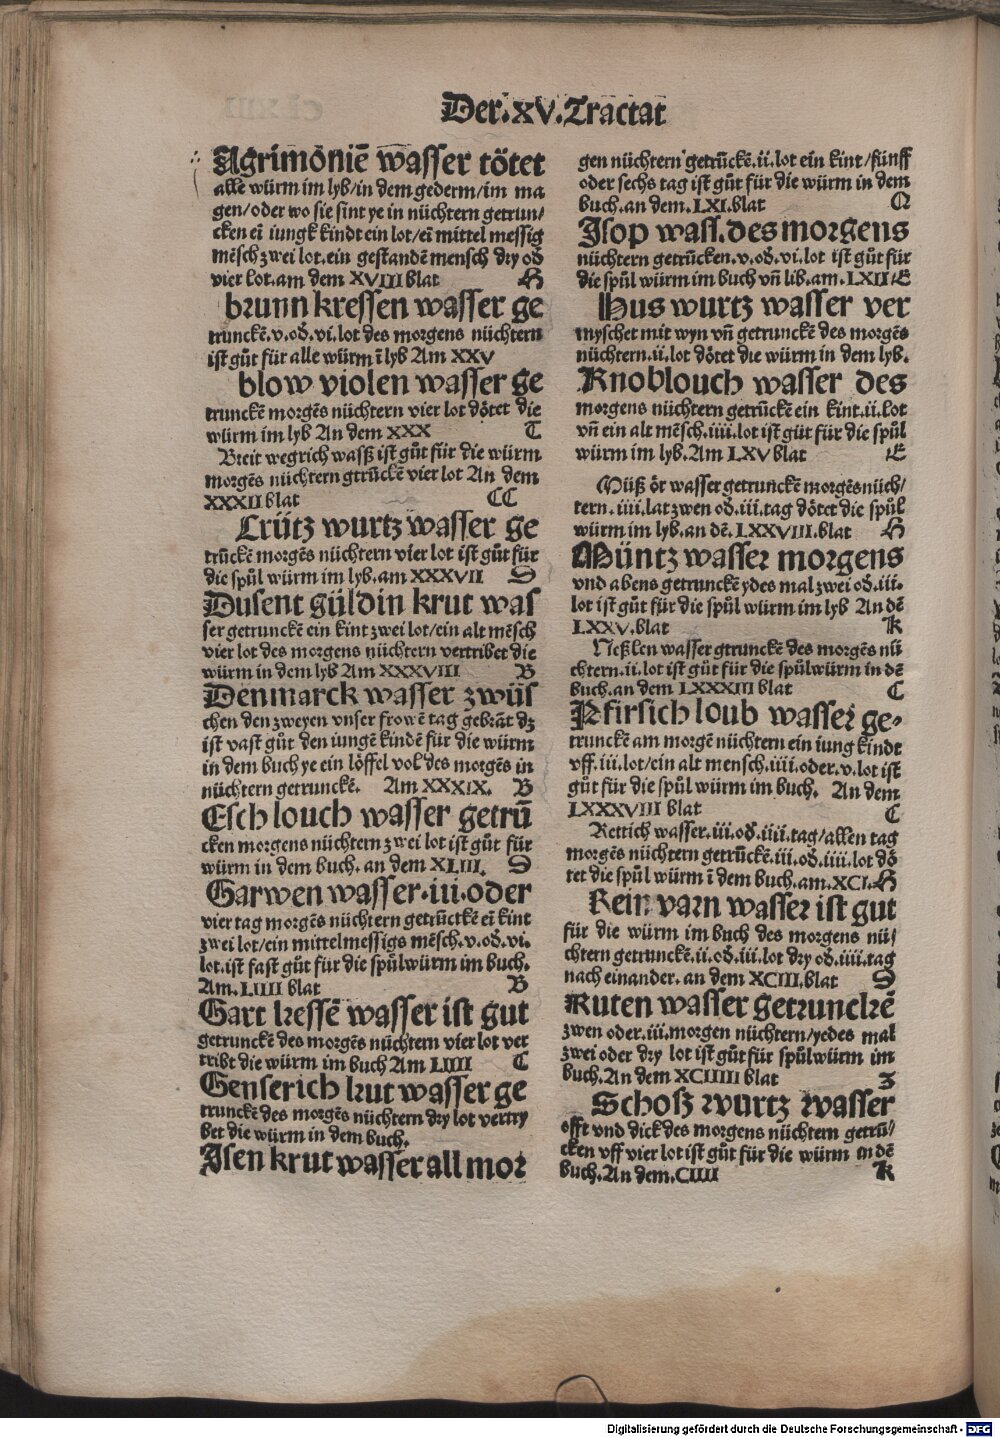 Der.XV.Tractat
Agrimoniē wasser tötet
alle würm im lyb/in dem gederm/im ma
gen/oder wo sie sint ye in nüchtern getrun/
cken eī iungk kindt ein lot/eī mittel messig
mēsch zwei lot.ein gestandē mensch dry od̄
vier lot.am dem XVIII blat H
brunn kressen wasser ge
trunckē.v.od̄.vi.lot des morgens nüchtern
ist gůt für alle würm ī lyb Am XXV
blow violen wasser ge
trunckē morgēs nüchtern vier lot dötet die
würm im lyb An dem XXX T
Breit wegrich wasß ist gůt für die würm
morgēs nüchtern gtrūckē vier lot An dem
XXXII blat CC
Crütz wurtz wasser ge
trūckē morgēs nüchtern vier lot ist gůt für
die spůl würm im lyb.am XXXVII D
Dusent güldin krut was
ser getrunckē ein kint zwei lot/ein alt mēsch
vier lot des morgens nüchtern vertribet die
würm in dem lyb Am XXXVIII B
Denmarck wasser zwüs
chen den zweyen vnser frowē tag gebrāt dz
ist vast gůt den iungē kindē für die würm
in dem buch ye ein löffel vol des morgēs in
nüchtern getrunckē. Am XXXIX. B
Esch louch wasser getrū
cken morgens nüchtern zwei lot ist gůt für
würm in dem buch.an dem XLIII. D
Garwen wasser.iii.oder
vier tag morgēs nüchtern getrūctkē eī kint
zwei lot/ein mittelmessigs mēsch.v.od̄.vi.
lot.ist fast gůt für die spůlwürm im buch.
Am.LIIII blat B
Gart kressē wasser ist gut
getrunckē des morgēs nüchtern vier lot ver
tribt die würm im buch Am LIIII C
Genserich krut wasser ge
trunckē des morgēs nüchtern dry lot vertry
bet die würm in dem buch.
Isen krut wasser all mor
gen nüchtern getrūckē.ii.lot ein kint/fünff
oder sechs tag ist gůt für die würm in dem
buch.an dem.LXI.blat Q
Isop wass.des morgens
nüchtern getrūcken.v.od̄.vi.lot ist gůt für
die spůl würm im buch vn̄ lib.am.LXII E
Hus wurtz wasser ver
myschet mit wyn vn̄ getrunckē des morgēs
nüchtern.ii.lot dötet die würm in dem lyb.
Knoblouch wasser des
morgens nüchtern getrūckē ein kint.ii.lot
vn̄ ein alt mēsch.iiii.lot ist gůt für die spůl
würm im lyb.Am LXV blat E
Müß ör wasser getrunckē morgēs nüch/
tern.iiii.lat zwen od̄.iii.tag dötet die spůl
würm im lyb.an dē.LXXVIII.blat H
Müntz wasser morgens
vnd abens getrunckē ydes mal zwei od̄.iii.
lot ist gůt für die spůl würm im lyb An dē
LXXV.blat K
Neßlen wasser gtrunckē des morgēs nü
chtern.ii.lot ist gůt für die spůlwürm in dē
buch.an dem LXXXIII blat C
Pfirsich loub wasser ge.
trunckē am morgē nüchtern ein iung kindt
vff.iii.lot/ein alt mensch.iiii.oder.v.lot ist
gůt für die spůl würm im buch. An dem
LXXXVIII blat C
Rettich wasser.iii.od̄.iiii.tag/allen tag
morgēs nüchtern getrūckē.iii.od̄.iiii.lot dö
tet die spůl würm ī dem buch.am.XCI.H
Rein varn wasser ist gut
für die würm im buch des morgens nü/
chtern getrunckē.ii.od̄.iii.lot dry od̄.iiii.tag
nach einander.an dem XCIII.blat D
Ruten wasser getrunckē
zwen oder.iii.morgen nüchtern/yedes mal
zwei oder dry lot ist gůt für spůlwürm im
buch.An dem XCIIIII blat Z
Schosz wurtz wasser
offt vnd dick des morgens nüchtern getrū/
cken vff vier lot ist gůt für die würm in dē
buch.An dem.CIIII K
Digitalisierung gefördert durch die Deutsche Forschungsgemeinschaft - DFG